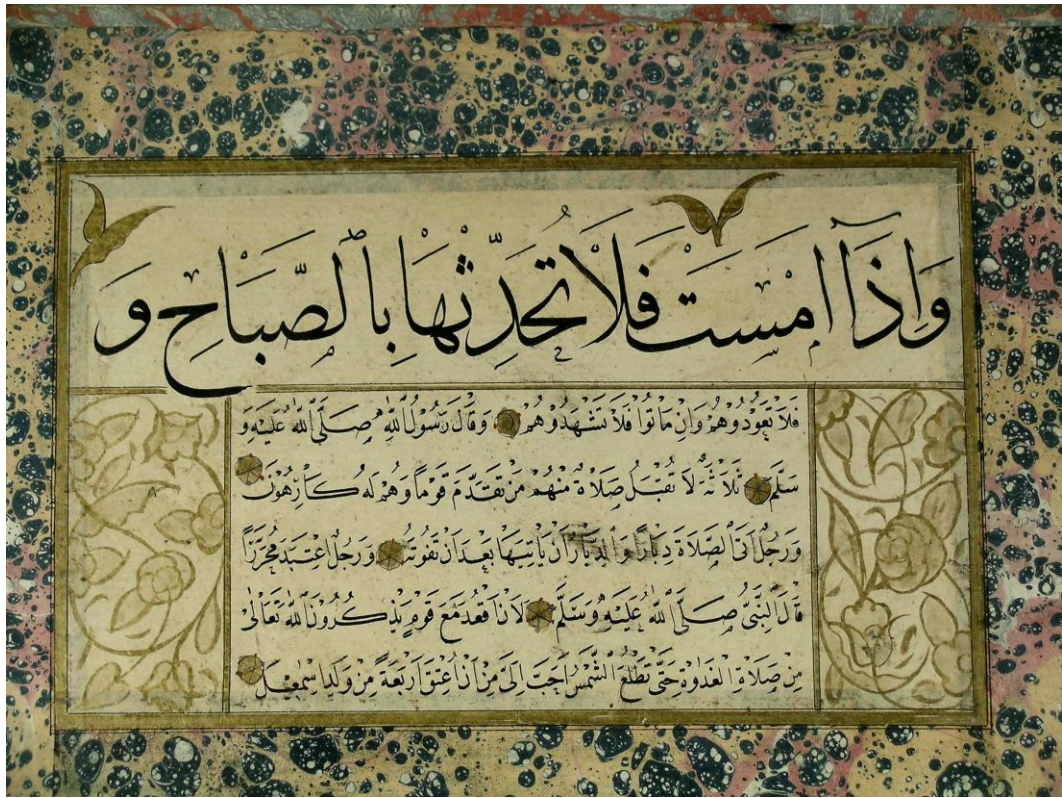 وَاِذَا اَمْسَتْ فَلَا تُحَدِّثْهَا بِالصَّبَاحِ وَ
فَلَا تَعُودُوْهُمْ وَاِنْ مَاتُوْا فَلَا تَشْهَدُوْهُمْ وَقَالَ رَسُوْلُ اللّٰهِ صَلَّى اللّٰهُ عَلَيْهِ وَ
سَلَّمَ ثَلَاثَةٌ لَا تُقْبَلُ صَلَاةٌ مِنْهُمْ مَنْ تَقَدَّمَ قَوْمًا وَهُمْ لَهُ كَارِهُوْنَ
وَرَجُلٌ اَتَى الصَّلَاةَ دِبَارًا وَالدِّبَارُ اَنْ يَاْتِيَهَا بَعْدَ اَنْ تَفُوْتَهُ وَرَجُلٌ اعْتَبَدَ مُحَرَّرًا
قَالَ النَّبِىُّ صَلَّى اللّٰهُ عَلَيْهِ وَسَلَّمَ لَاَنْ اَقْعُدَ مَعَ قَوْمٍ يَذْكُرُوْنَ اللّٰهَ تَعَالٰى
مِنْ صَلَاةِ الْغَدٰوةِ حَتّٰى تَطْلُعَ الشَّمْسُ اَحَبُّ اِلَىَّ مِنْ اَنْ اُعْتِقَ اَرْبَعَةً مِنْ وَلَدِ اِسْمٰعِيْلَ